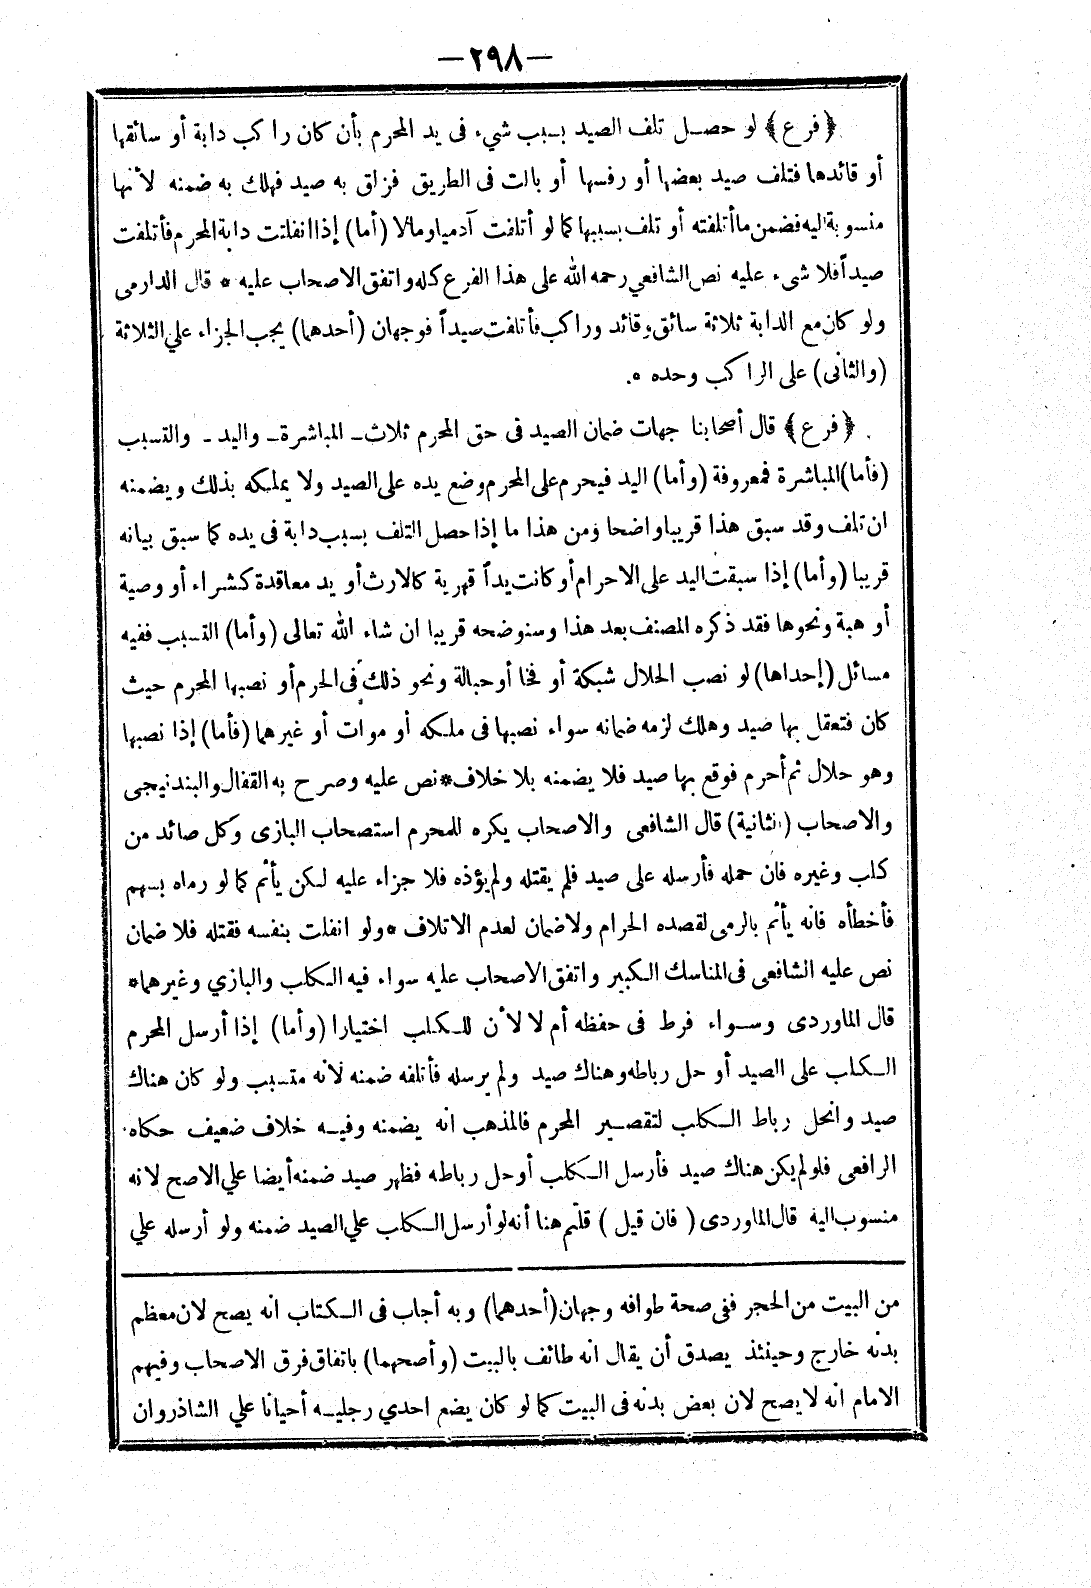 —٢٩٨—
﴿فرع﴾ لو حصل تلف الصيد بسبب شيء فى يد المحرم بأن كان راكب دابة أو سائقها
أو قائدها فتلف صيد بعضها أو رفسها أو بالت فى الطريق فزلق به صيد فهلك به ضمنه لأنها
منسوبة اليه فضمن ما أتلفته أو تلف بسببها كما لو أتلفت آدميا ومالا (أما) إذا انفلتت دابة المحرم فأتلفت
صيداً فلا شيء عليه نص الشافعي رحمه الله على هذا الفرع كله واتفق الاصحاب عليه * قال الدارمى
ولو كان مع الدابة ثلاثة سائق وقائد وراكب فأتلفت صيداً فوجهان (أحدهما) يجب الجزاء علي الثلاثة
(والثانى) على الراكب وحده *.
﴿فرع﴾ قال أصحابنا جهات ضمان الصيد فى حق المحرم ثلاث - المباشرة - واليد - والتسبب
(فأما) المباشرة فمعروفة (وأما) اليد فيحرم على المحرم وضع يده على الصيد ولا يملكه بذلك ويضمنه
ان تلف وقد سبق هذا قريبا واضحا ومن هذا ما إذا حصل التلف بسبب دابة فى يده كما سبق بيانه
قريبا (وأما) إذا سبقت اليد على الاحرام أو كانت يداً قهرية كالارث أو يد معاقدة كشراء أو وصية
أو هبة ونحوها فقد ذكره المصنف بعد هذا وسنوضحه قريبا ان شاء الله تعالى (وأما) التسبب ففيه
مسائل (إحداها) لو نصب الحلال شبكة أو فخا أو حبالة ونحو ذلك فى الحرم أو نصبها المحرم حيث
كان فتعقل بها صيد وهلك لزمه ضمانه سواء نصبها فى ملكه أو موات أو غيرهما (فأما) إذا نصبها
وهو حلال ثم أحرم فوقع بها صيد فلا يضمنه بلا خلاف * نص عليه وصرح به القفال والبندنيجى
والاصحاب (الثانية) قال الشافعى والاصحاب يكره للمحرم استصحاب البازى وكل صائد من
كلب وغيره فان حمله فأرسله على صيد فلم يقتله ولم يؤذه فلا جزاء عليه لكن يأثم كما لو رماه بسهم
فأخطأه فانه يأثم بالرمى لقصده الحرام ولا ضمان لعدم الاتلاف * ولو انفلت بنفسه فقتله فلا ضمان
نص عليه الشافعى فى المناسك الكبير واتفق الاصحاب عليه سواء فيه الكلب والبازي وغيرهما *
قال الماوردى وسواء فرط فى حفظه أم لا لأن للكلب اختيارا (وأما) إذا أرسل المحرم
الكلب على الصيد أو حل رباطه وهناك صيد ولم يرسله فأتلفه ضمنه لانه متسبب ولو كان هناك
صيد وانحل رباط الكلب لتقصير المحرم فالمذهب انه يضمنه وفيه خلاف ضعيف حكاه
الرافعى فلو لم يكن هناك صيد فأرسل الكلب أو حل رباطه فظهر صيد ضمنه أيضا علي الاصح لانه
منسوب اليه قال الماوردى (فان قيل) قلتم هنا أنه لو أرسل الكلب علي الصيد ضمنه ولو أرسله علي
من البيت من الحجر ففى صحة طوافه وجهان (أحدهما) وبه أجاب فى الكتاب انه يصح لان معظم
بدنه خارج وحينئذ يصدق أن يقال انه طائف بالبيت (وأصحهما) باتفاق فرق الاصحاب وفيهم
الامام انه لا يصح لان بعض بدنه فى البيت كما لو كان يضع احدي رجليه أحيانا علي الشاذروان